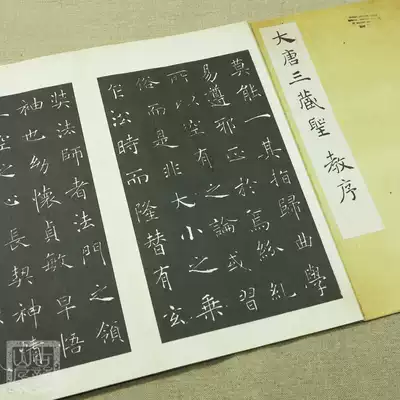 大唐三藏聖教序
莫能一其指歸曲學
易遵邪正於焉紛糺
所以空有之論或習
俗而是非大小之乘
乍沿時而隆替有玄
奘法師者法門之領
袖也幼懷貞敏早悟
空之心長契神情